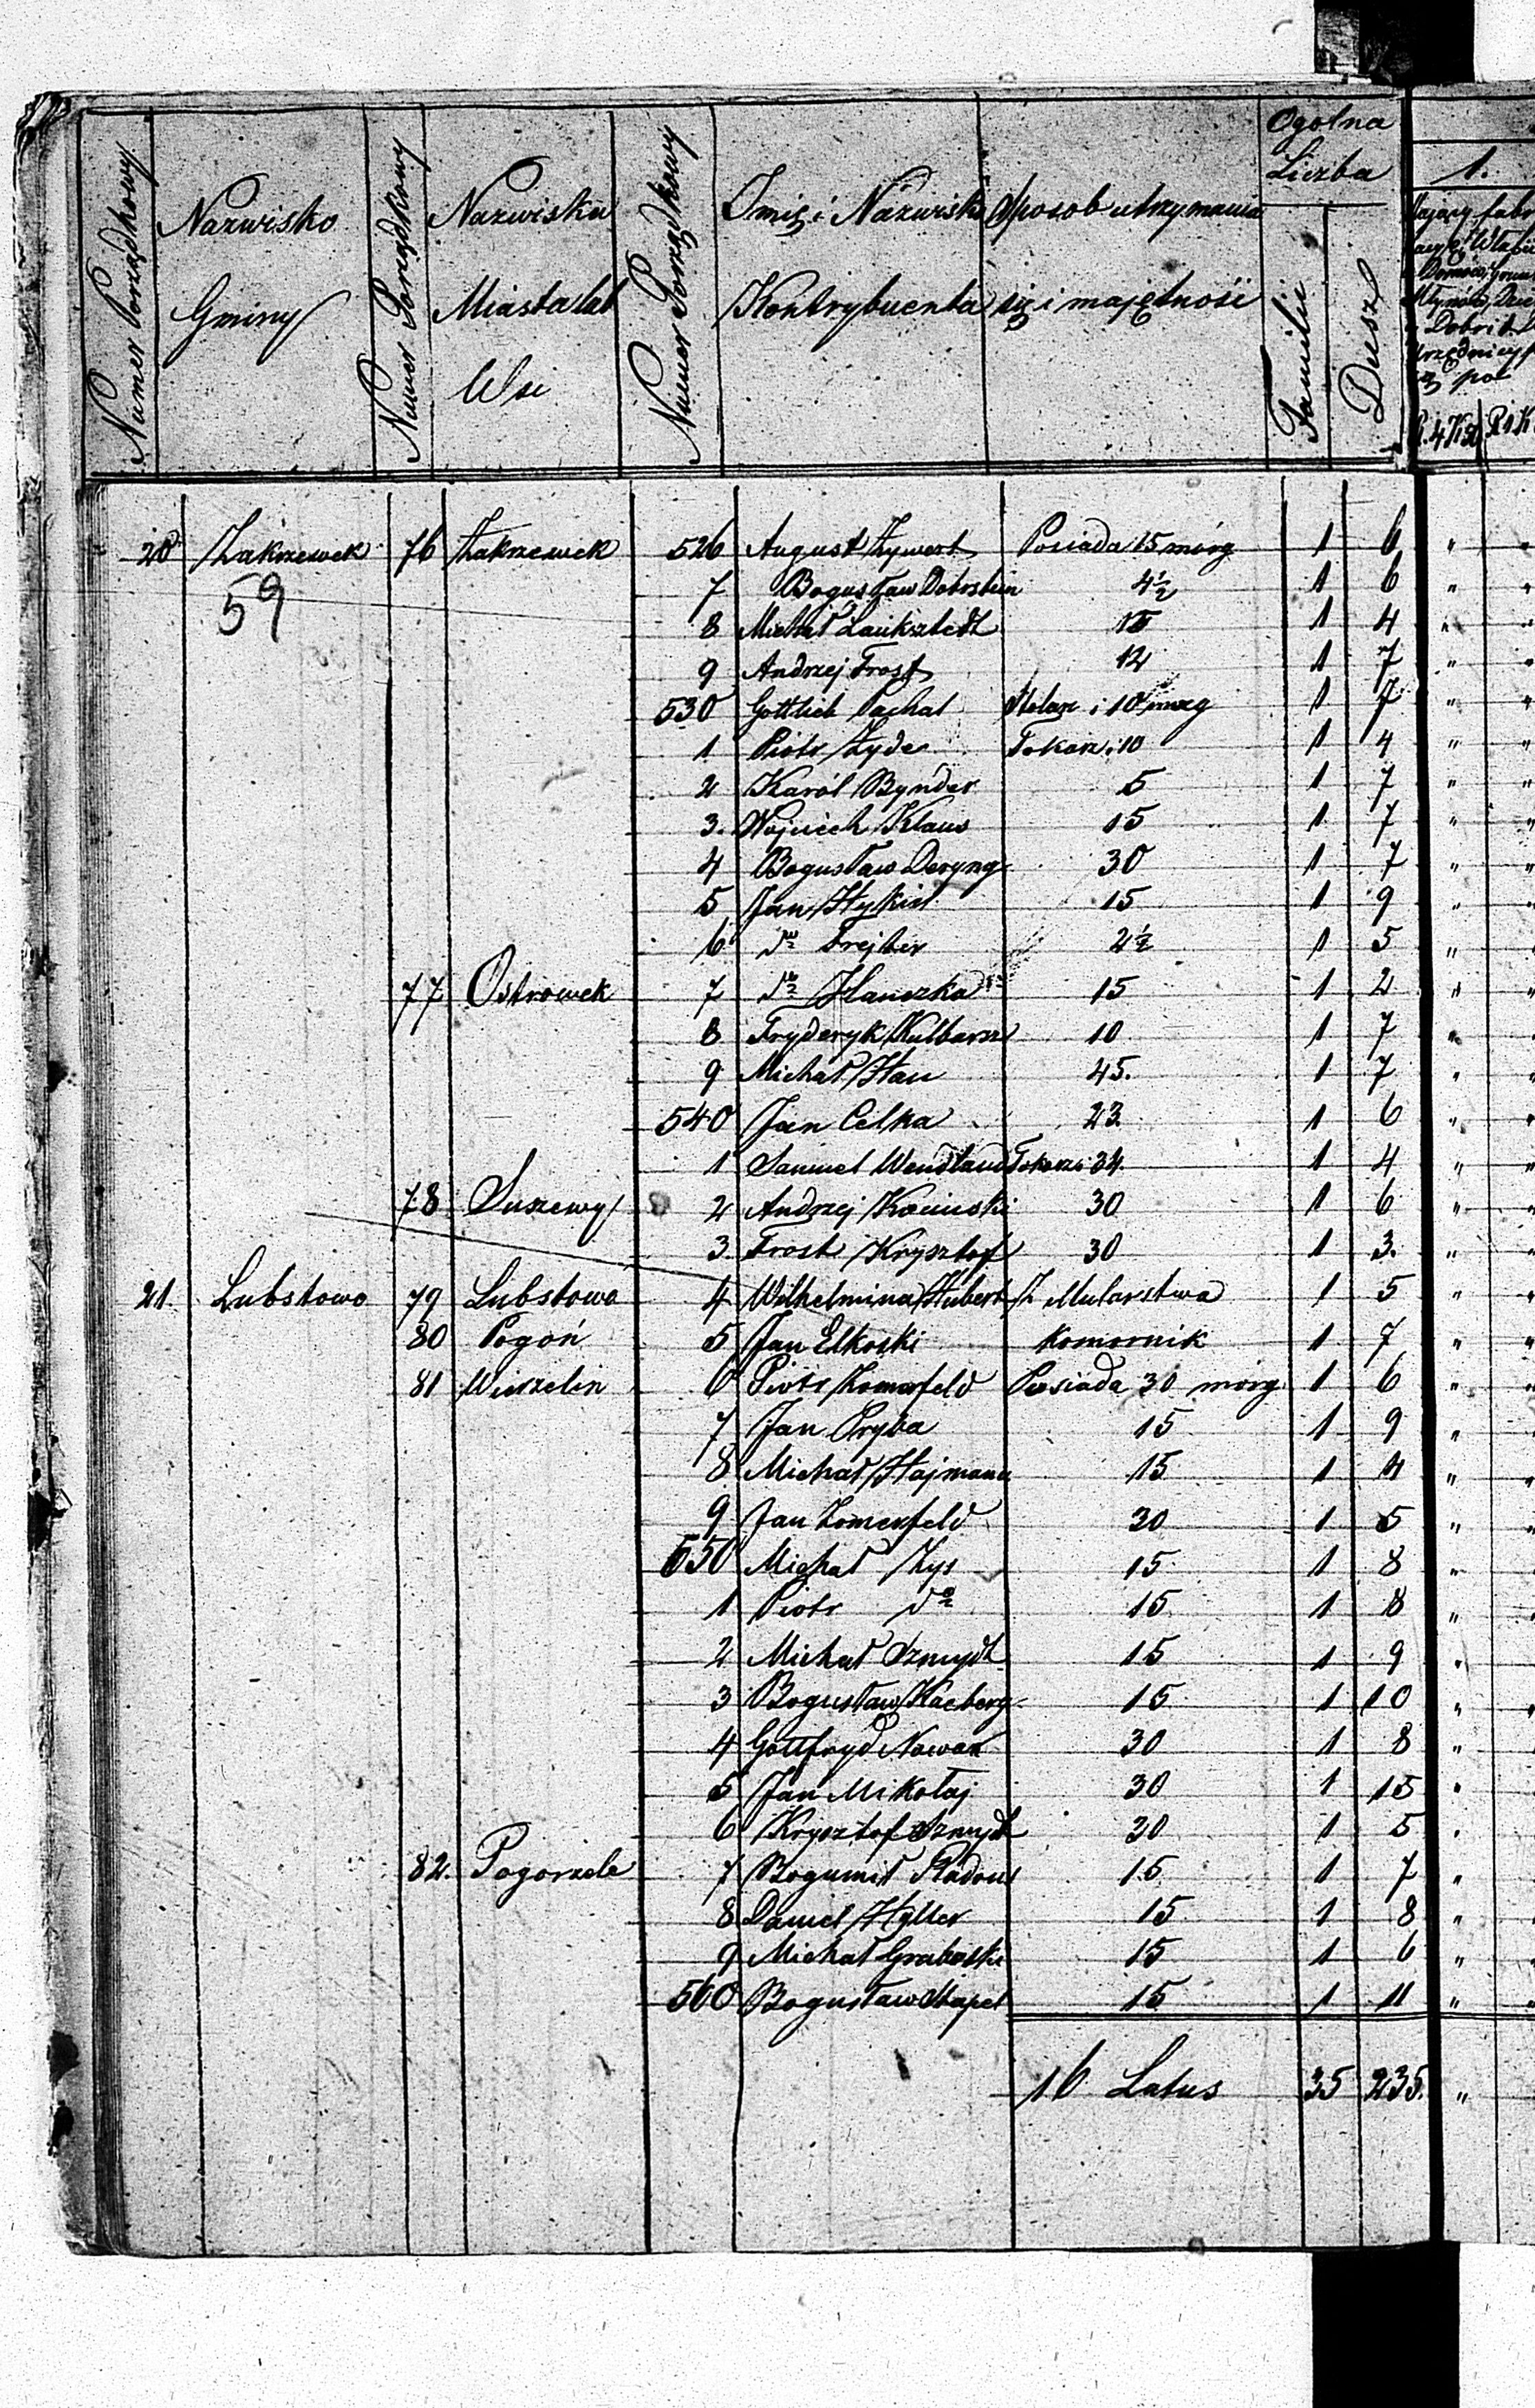 Numer Porządkowy
Nazwisko Gminy
Numer Porządkowy
Nazwisko Miasta lub Wsi
Numer Porządkowy
Imię i Nazwisko Kontrybuenta
Sposob utrzymania się i majętności
Ogolna Liczba
Familii
Dusz
1.
20 Zakrzewek 76 Zakrzewek 526 August Zywert Posiada 15 mórg 1 6 "
59
7 Bogusław Dobrstein 4½ 1 6 "
8 Michał Lauksztedt 15 1 4 "
9 Andrzej Frost 12 1 7 "
530 Gottlieb Pachal Stolarz i 10 mórg 1 7 "
1 Piotr Zyde Tokarz i 10 1 4 "
2 Karól Bynder 5 1 7 "
3. Wojciech Klaus 15 1 7 "
4 Bogusław Deryng 30 1 7 "
5 Jan Hykiel 15 1 9 "
6 do Frejter 2½ 1 5 "
77 Ostrowek 7 do Hanczka 15 1 2 "
8 Fryderyk Kulbarsz 10 1 7 "
9 Michał Hau 45. 1 7 "
540 Jan Celka 23. 1 6 "
1 Samuel Wendland Tokarz i 34. 1 4 "
78 Suszewy 2 Andrzej Koninski 30 1 6 "
3. Frost Krysztof 30 1 3. "
21. Lubstowo 79 Lubstowo 4 Wilhelmina Hubert Z Mularstwa 1 5 "
80 Pogoń 5 Jan Elkoski Komornik 1 7 "
81 Wierzelin 6 Piotr Zomerfeld Posiada 30 mórg 1 6 "
7 Jan Pryba 15 1 9 "
8 Michał Hajmann 15 1 4 "
9 Jan Zomerfeld 30 1 5 "
550 Michał Zys 15 1 8 "
1 Piotr do 15 1 8 "
2 Michał Szmydt 15 1 9 "
3 Bogusław Kacberg 15 1 10 "
4 Gottfryd Nowak 30 1 8 "
5 Jan Mikołaj 30 1 15 "
6 Krysztof Szmydt 30 1 5 "
82. Pogorzele 7 Bogumił Radous 15 1 7 "
8 Daniel Hyller 15 1 8 "
9 Michał Graboski 15 1 6 "
560 Bogusław Stapel 15 1 11 "
16 Latus 35 235. "